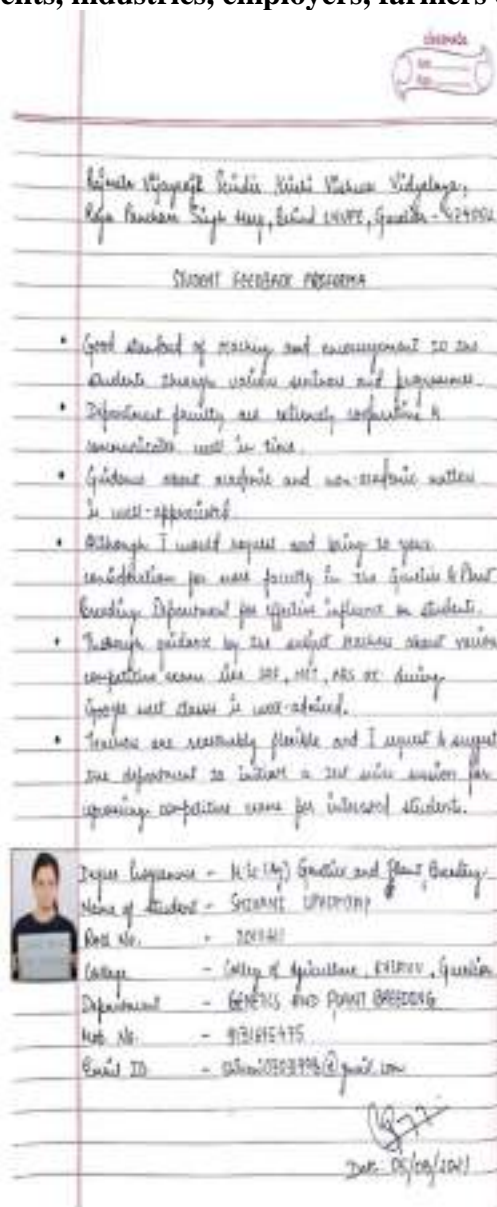 ents, industries, employers, farmers
classmate
Date
Page
Rajmata Vijayaraje Scindia Krishi Vishwa Vidyalaya,
Raja Pancham Singh Marg, Behind LNUPE, Gwalior - 474002
STUDENT FEEDBACK PROFORMA
• Good standard of teaching and encouragement to the
students through various seminars and programmes.
• Department faculty are extremely cooperative &
communicates well in time.
• Guidance about academic and non-academic matters
is well-appreciated.
• Although I would request and bring to your
consideration for more faculty in the Genetics & Plant
Breeding Department for effective influence on students.
• Thorough guidance by the subject teachers about various
competitive exams like JRF, NET, ARS etc during
Google meet classes is well-admired.
• Teachers are reasonably flexible and I request & suggest
the department to initiate a test series session for
upcoming competitive exams for interested students.
Degree Programme - M.Sc (Ag) Genetics and Plant Breeding
Name of Student - SHIVANI UPADHYAY
Roll No. -
College - College of Agriculture, RVSKVV, Gwalior
Department - GENETICS AND PLANT BREEDING
Mob No. -
Email ID - @gmail.com
Date: 05/09/2021